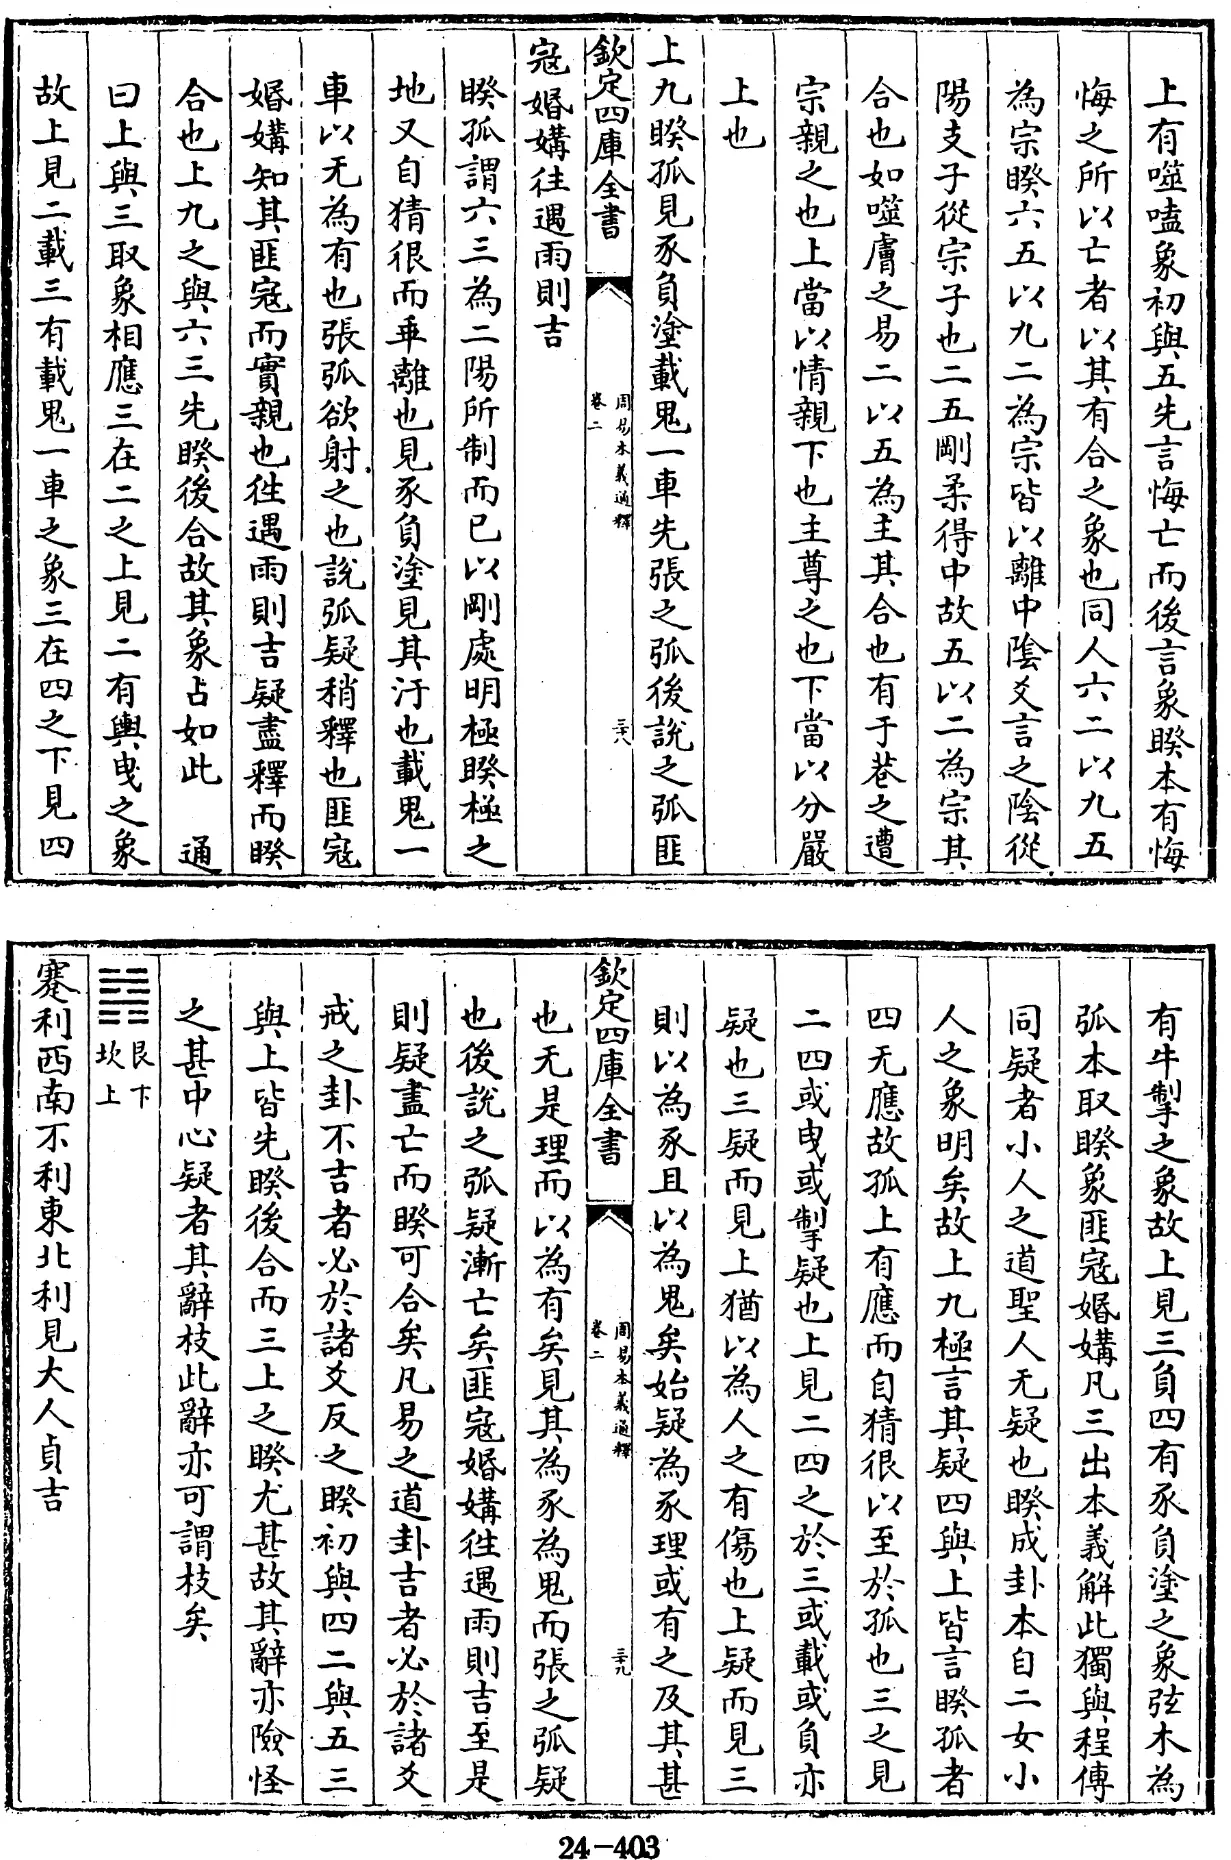 上有噬嗑象初與五先言悔亡而後言象睽本有悔
悔之所以亡者以其有合之象也同人六二以九五
為宗睽六五以九二為宗皆以離中陰爻言之陰從
陽支子從宗子也二五剛柔得中故五以二為宗其
合也如噬膚之易二以五為主其合也有于巷之遭
宗親之也上當以情親下也主尊之也下當以分嚴
上也
上九睽孤見豕負塗載鬼一車先張之弧後說之弧匪
欽定四庫全書
周易本義通釋
卷二
三十八
寇婚媾往遇雨則吉
睽孤謂六三為二陽所制而已以剛處明極睽極之
地又自猜很而乖離也見豕負塗見其汙也載鬼一
車以无為有也張弧欲射之也說弧疑稍釋也匪寇
婚媾知其匪寇而實親也徃遇雨則吉疑盡釋而睽
合也上九之與六三先睽後合故其象占如此 通
曰上與三取象相應三在二之上見二有輿曳之象
故上見二載三有載鬼一車之象三在四之下見四
有牛掣之象故上見三負四有豕負塗之象弦木為
弧本取睽象匪寇婚媾凡三出本義解此獨與程傳
同疑者小人之道聖人无疑也睽成卦本自二女小
人之象明矣故上九極言其疑四與上皆言睽孤者
四无應故孤上有應而自猜很以至於孤也三之見
二四或曳或掣疑也上見二四之於三或載或負亦
疑也三疑而見上猶以為人之有傷也上疑而見三
則以為豕且以為鬼矣始疑為豕理或有之及其甚
欽定四庫全書
周易本義通釋
卷二
三十九
也无是理而以為有矣見其為豕為鬼而張之弧疑
也後說之弧疑漸亡矣匪寇婚媾徃遇雨則吉至是
則疑盡亡而睽可合矣凡易之道卦吉者必於諸爻
戒之卦不吉者必於諸爻反之睽初與四二與五三
與上皆先睽後合而三上之睽尤甚故其辭亦險怪
之甚中心疑者其辭枝此辭亦可謂枝矣
艮下
坎上
蹇利西南不利東北利見大人貞吉
24-403